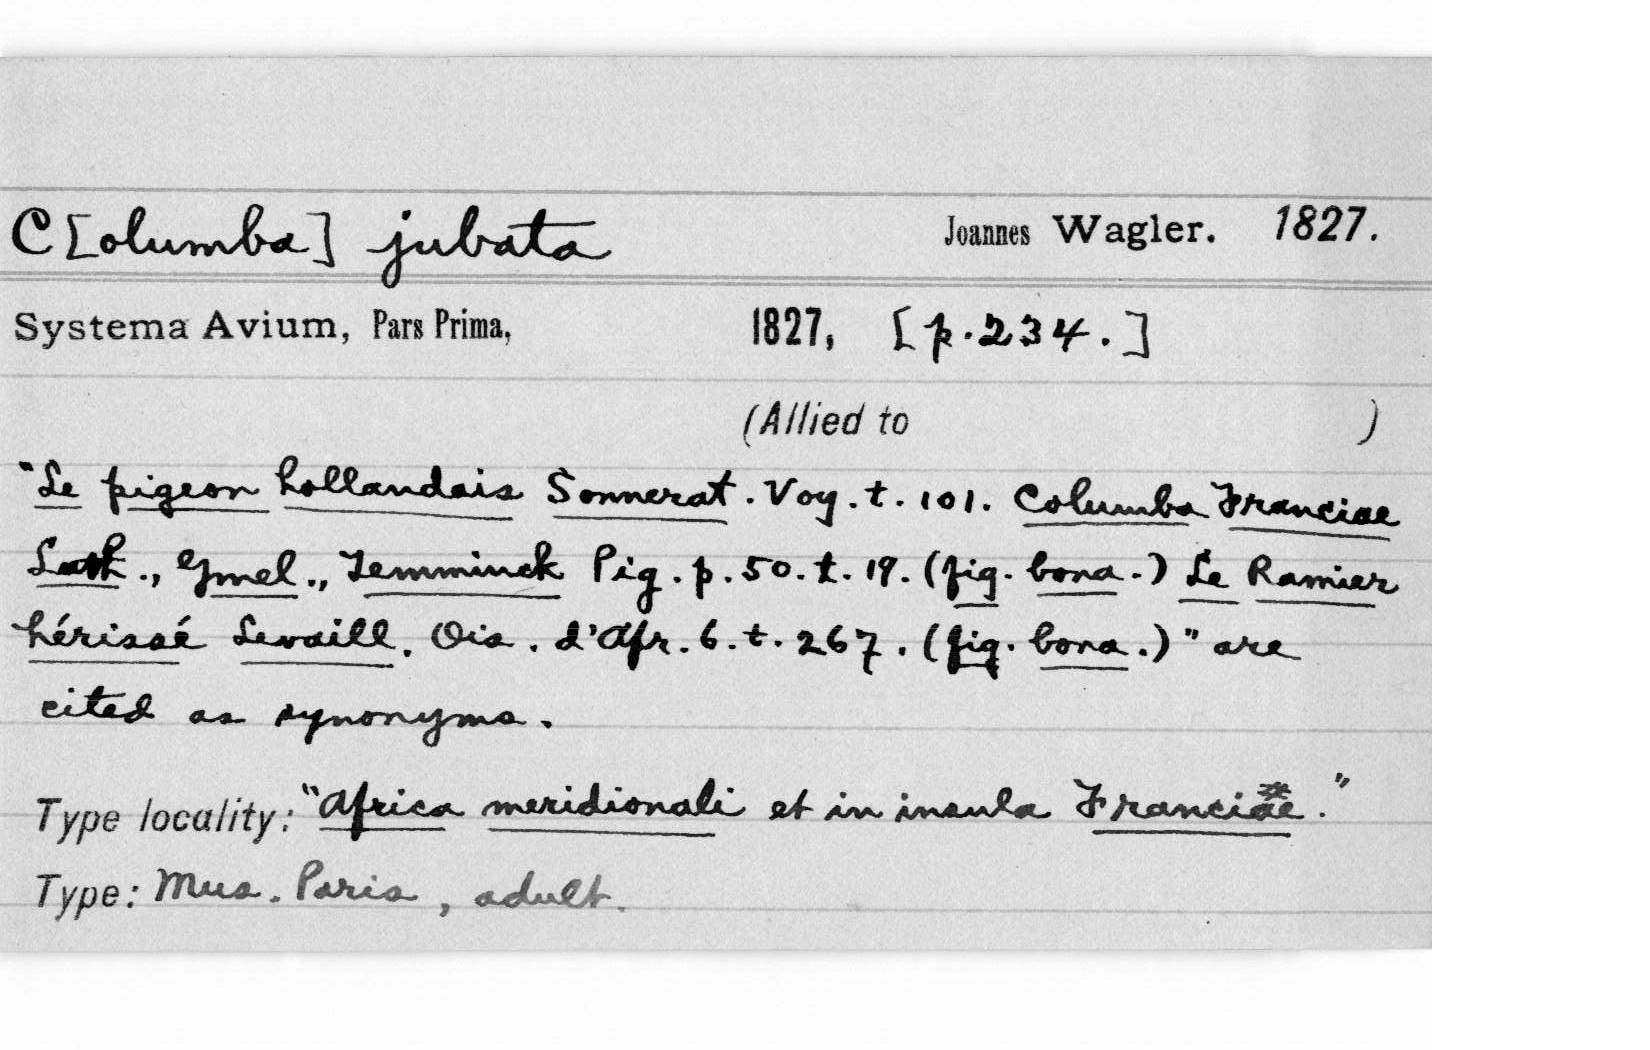 C[olumba] jubata Joannes Wagler. 1827.
Systema Avium, Pars Prima, 1827, [p.234.]
(Allied to )
"Le pigeon hollandais Sonnerat. Voy. t. 101. Columba Franciae
Lath., Gmel., Temminck Pig. p. 50. t. 19. (fig. bona.) Le Ramier
hérissé Levaill. Ois. d'Afr. 6. t. 267. (fig. bona.)" are
cited as synonyms.
Type locality: "Africa meridionali et in insula Franciae."
Type: Mus. Paris, adult.